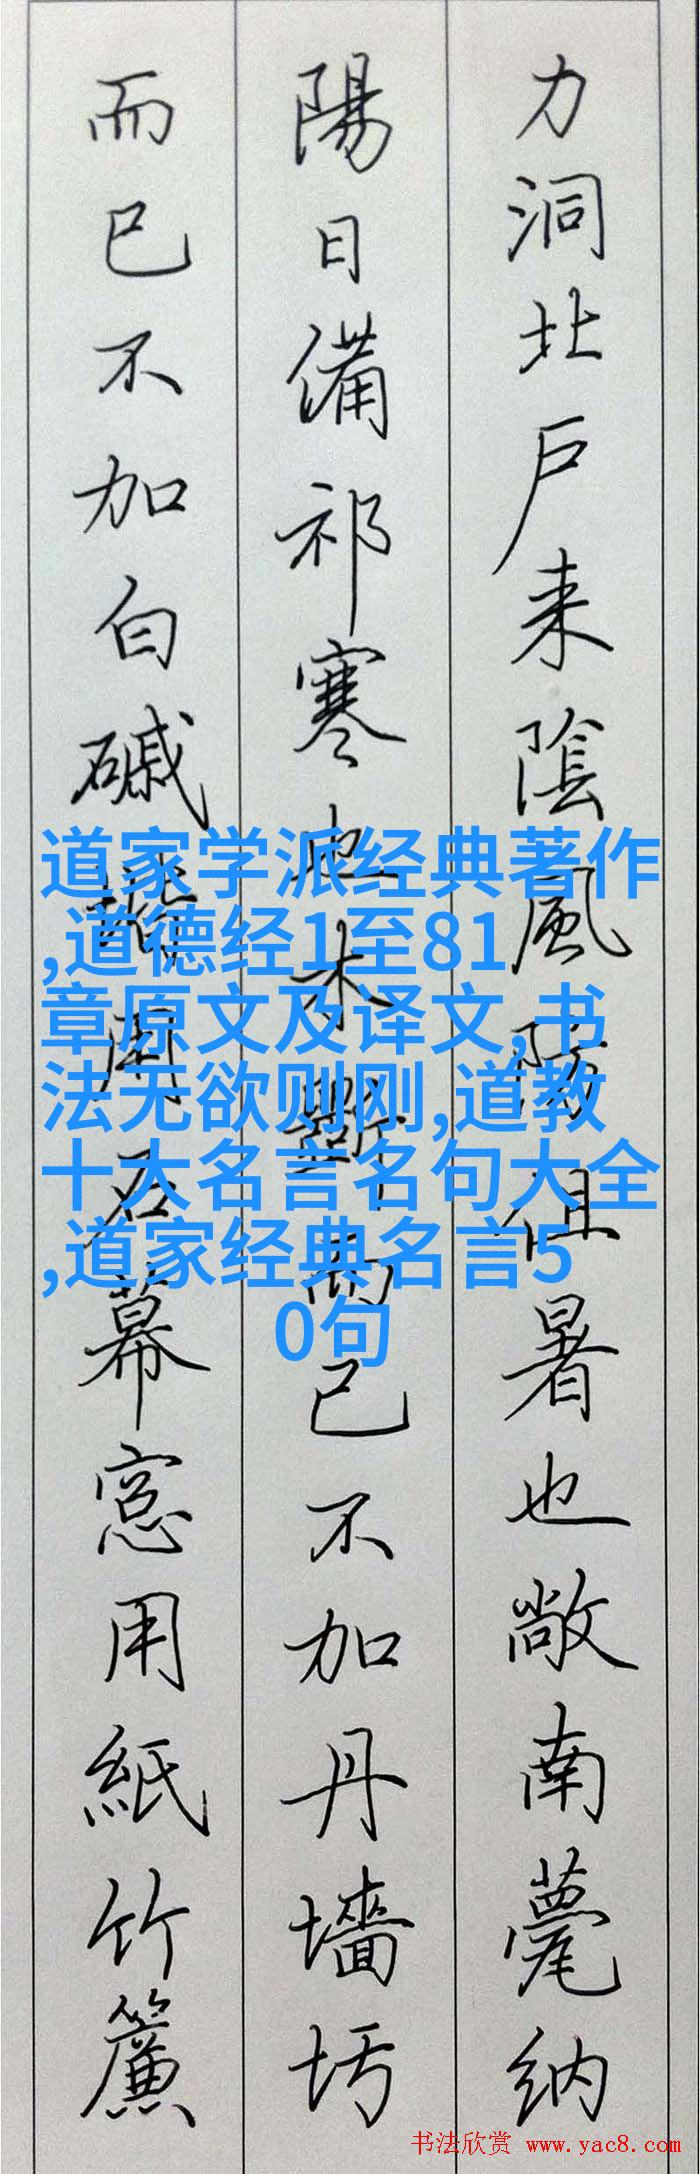 力洞北戶来陰風防徂暑也敞南甍纳
陽日備祁寒也木斲而已不加丹墻圬
而已不加白磩階用石幕窓用紙竹簾
道家学派经典著作
,道德经1至81
章原文及译文,书
法无欲则刚,道教
十大名言名句大全
,道家经典名言5
0句
书法欣赏 www.yac8.com